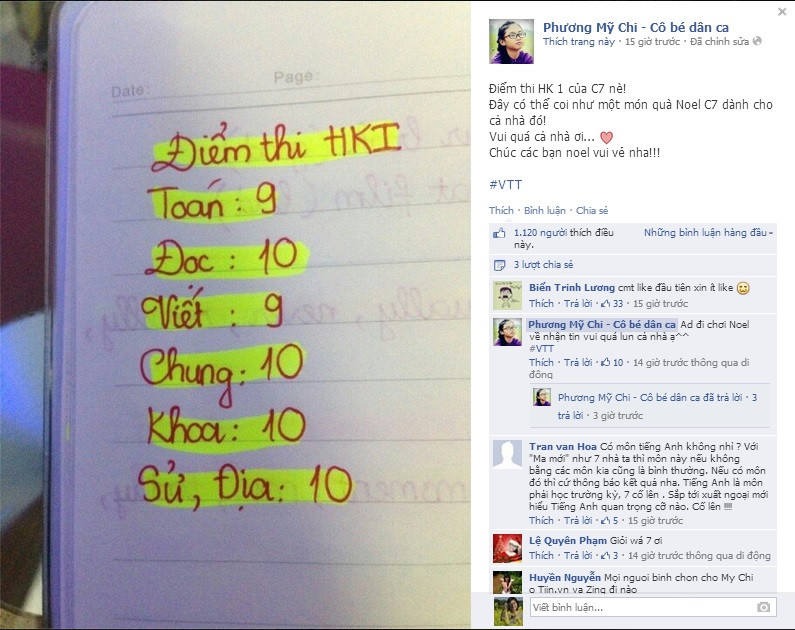 Date:
Page:
Điểm thi HKI
Toán: 9
Đọc: 10
Viết: 9
Chung: 10
Khoa: 10
Sử, Địa: 10
Phương Mỹ Chi - Cô bé dân ca
Thích trang này · 15 giờ trước · Đã chỉnh sửa
Điểm thi HK 1 của C7 nè!
Đây có thể coi như một món quà Noel C7 dành cho
cả nhà đó!
Vui quá cả nhà ơi...
Chúc các bạn noel vui vẻ nha!!!
#VTT
Thích · Bình luận · Chia sẻ
1.120 người thích điều
này.
Những bình luận hàng đầu
3 lượt chia sẻ
Biển Trinh Lương cmt like đầu tiên xin ít like
Thích · Trả lời · 33 · 15 giờ trước
Phương Mỹ Chi - Cô bé dân ca Ad đi chơi Noel
về nhận tin vui quá lun cả nhà ạ^^
#VTT
Thích · Trả lời · 10 · 14 giờ trước thông qua di
động
Phương Mỹ Chi - Cô bé dân ca đã trả lời · 3
trả lời · 3 giờ trước
Tran van Hoa Có môn tiếng Anh không nhỉ ? Với
"Ma mới" như 7 nhà ta thì môn này nếu không
bằng các môn kia cũng là bình thường. Nếu có môn
đó thì cứ thông báo kết quả nha. Tiếng Anh là môn
phải học trường kỳ, 7 cố lên . Sắp tới xuất ngoại mới
hiểu Tiếng Anh quan trọng cỡ nào. Cố lên !!!!
Thích · Trả lời · 5 · 15 giờ trước
Lệ Quyên Phạm Giỏi wá 7 ơi
Thích · Trả lời · 3 · 14 giờ trước thông qua di động
Huyền Nguyễn Mọi nguoi binh chon cho My Chi
o Tiin.vn va Zing đi nào
Viết bình luận...